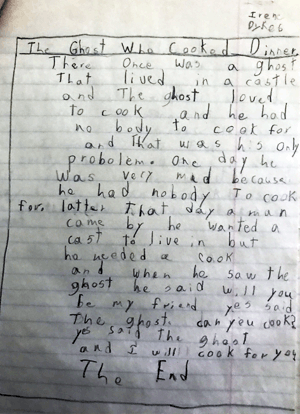 Iren
The Ghost Who Cooked Dinner
There once was a ghost
That lived in a castle
and The ghost loved
to cook and he had
no body to cook for
and that was his only
probolem. One day he
was very mad because
he had nobody To cook
for. latter That day a man
came by he wanted a
cast to live in but
he needed a cook
and when he saw the
ghost he said will you
be my friend yes said
The ghost. can you cook?
yes said The ghost
and I will cook for you
The End